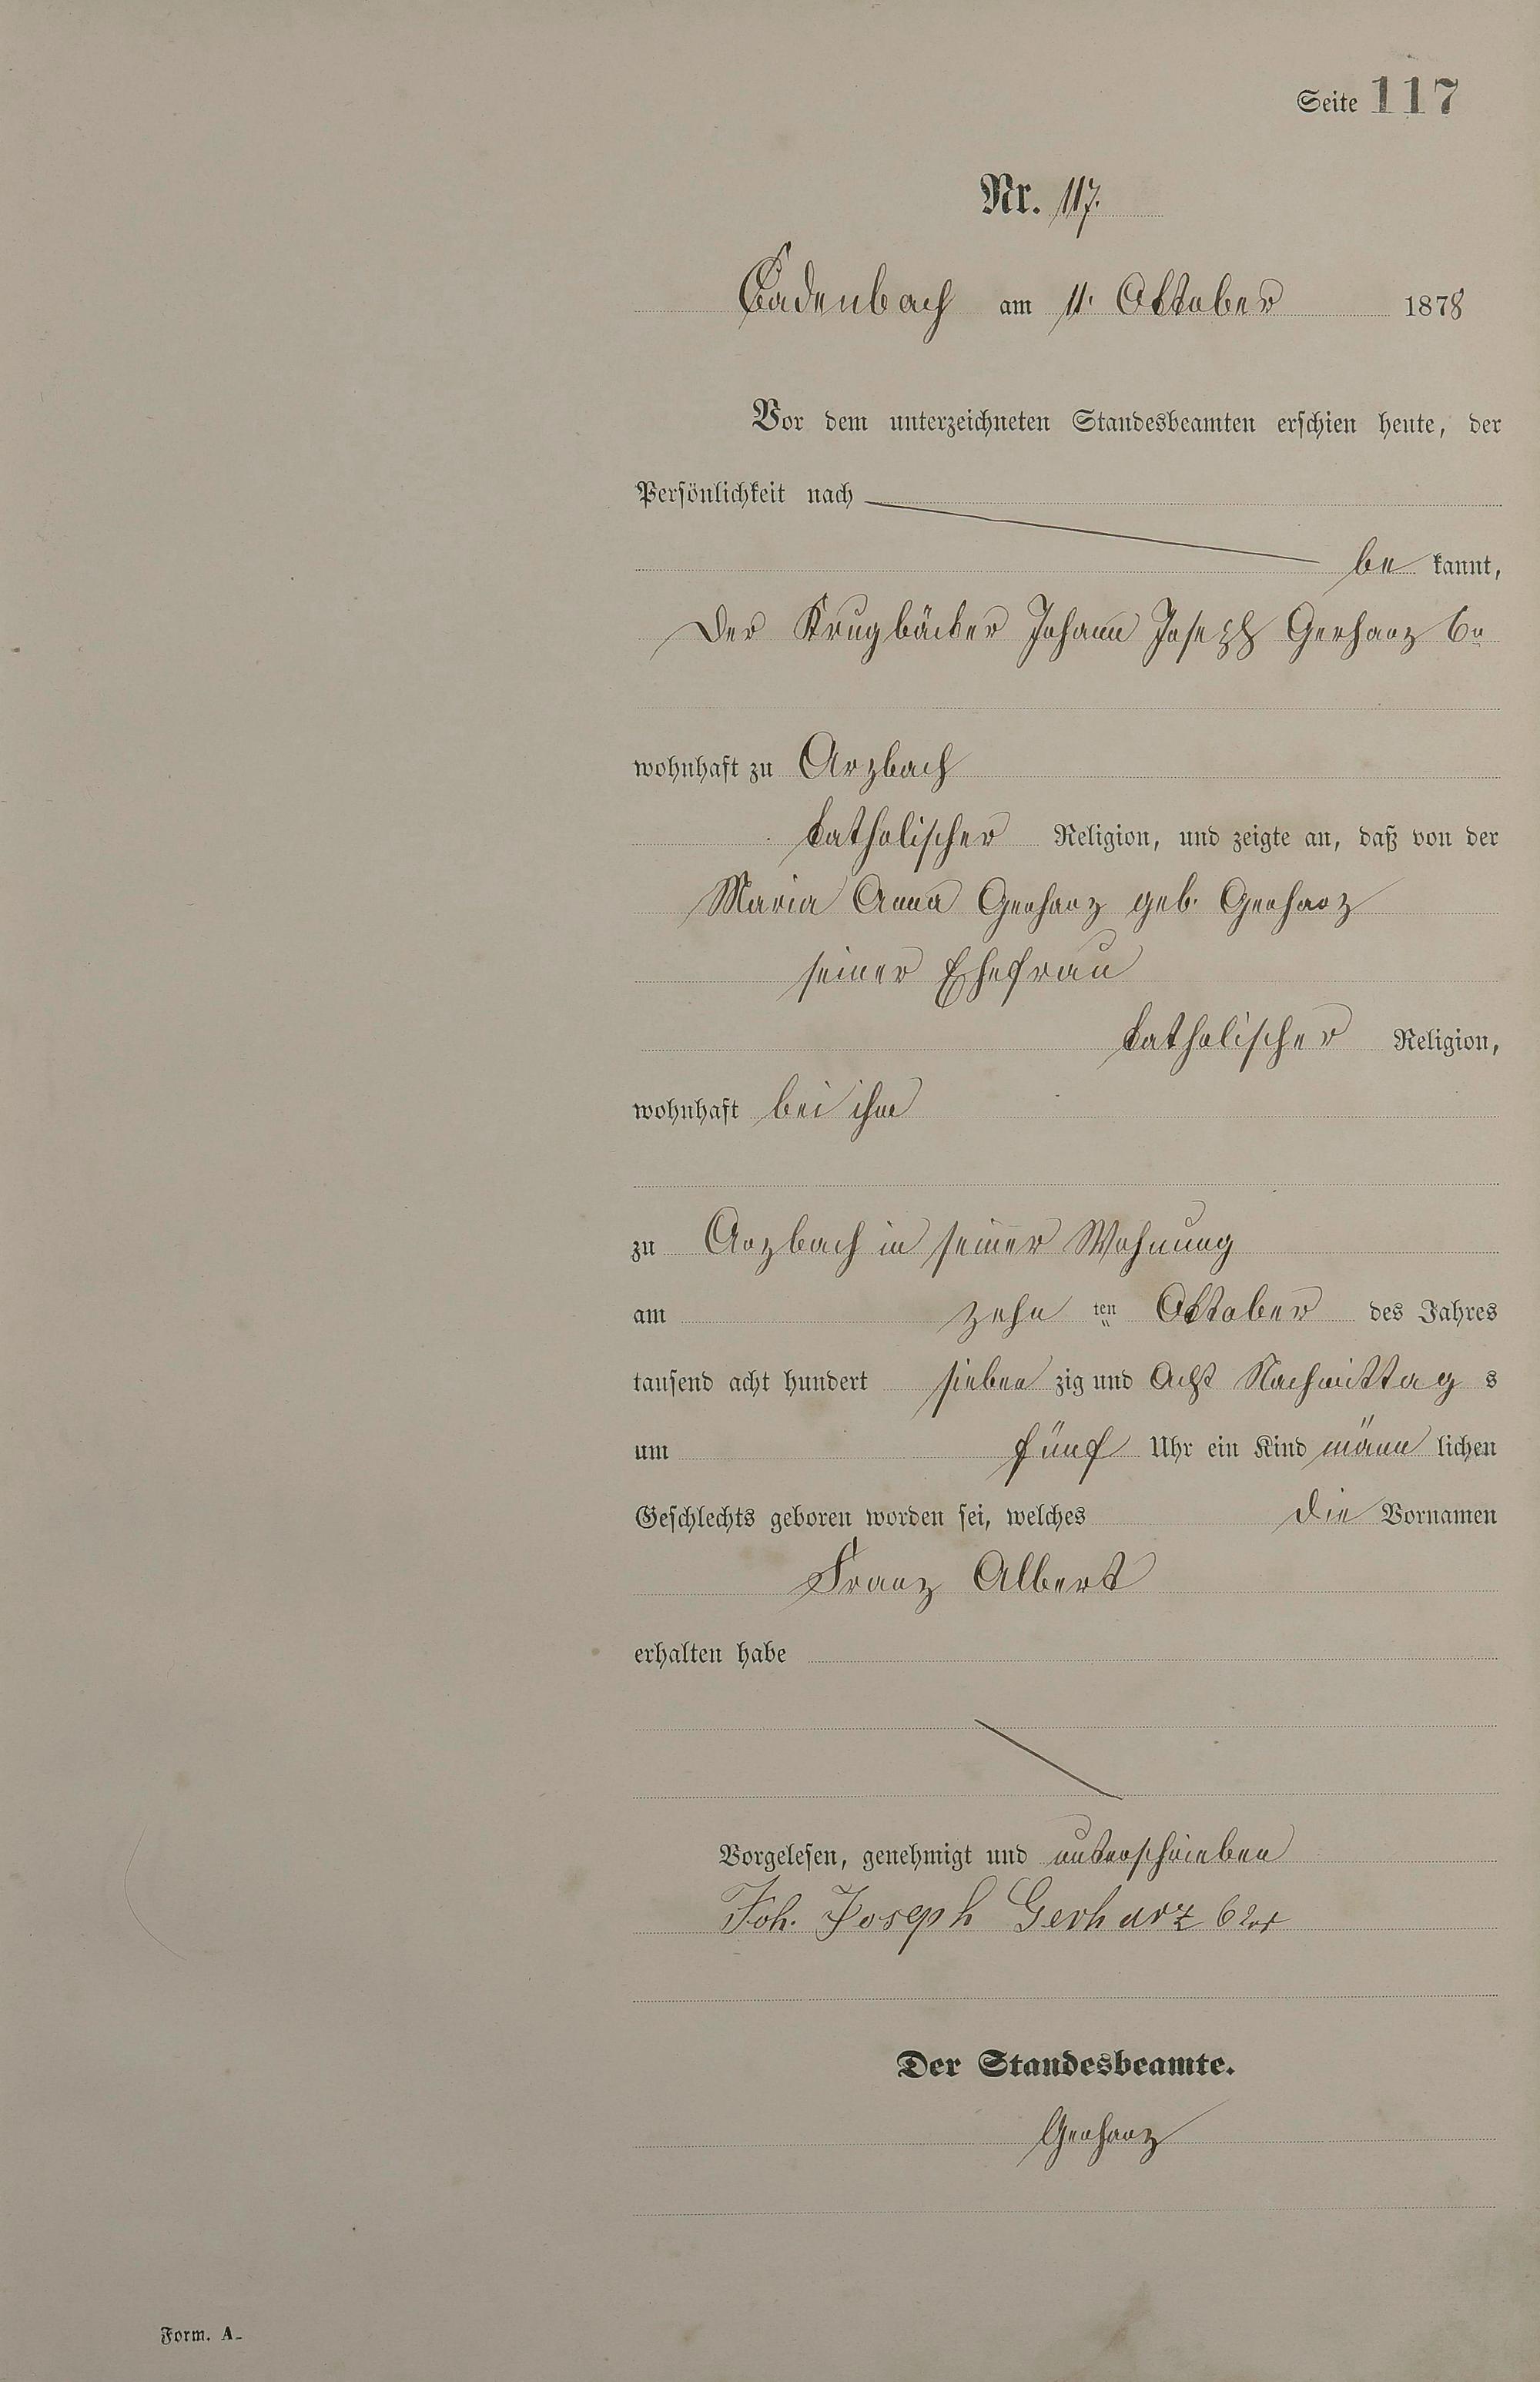 Seite 117
Nr. 117.
Cadenbach am 11. Oktober 1878
Vor dem unterzeichneten Standesbeamten erschien heute, der
Persönlichkeit nach
be kannt,
der Krugbäcker Johann Joseph Gerharz 6r
wohnhaft zu Arzbach
katholischer Religion, und zeigte an, daß von der
Maria Anna Gerharz geb. Gerharz
seiner Ehefrau
katholischer Religion,
wohnhaft bei ihm
zu Arzbach in seiner Wohnung
am zehn ten Oktober des Jahres
tausend acht hundert sieben zig und Acht Nachmittag s
um fünf Uhr ein Kind männ lichen
Geschlechts geboren worden sei, welches die Vornamen
Franz Albert
erhalten habe
Vorgelesen, genehmigt und unterschrieben
Joh. Joseph Gerharz
Der Standesbeamte.
Gerharz
Form. A.